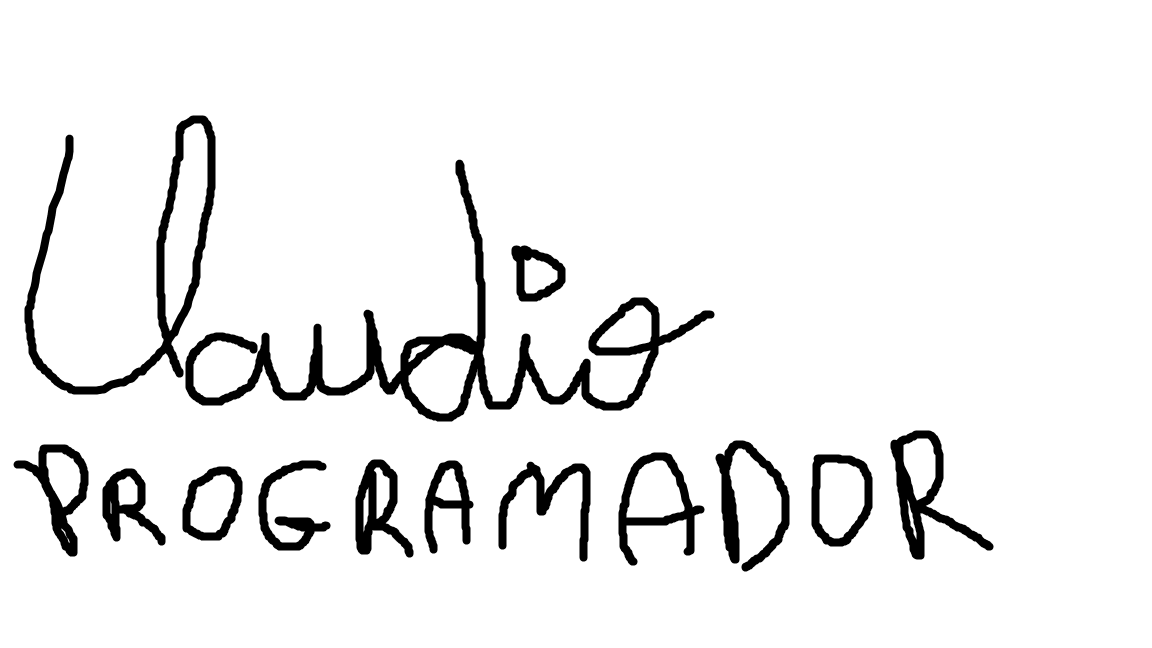 Claudio
PROGRAMADOR